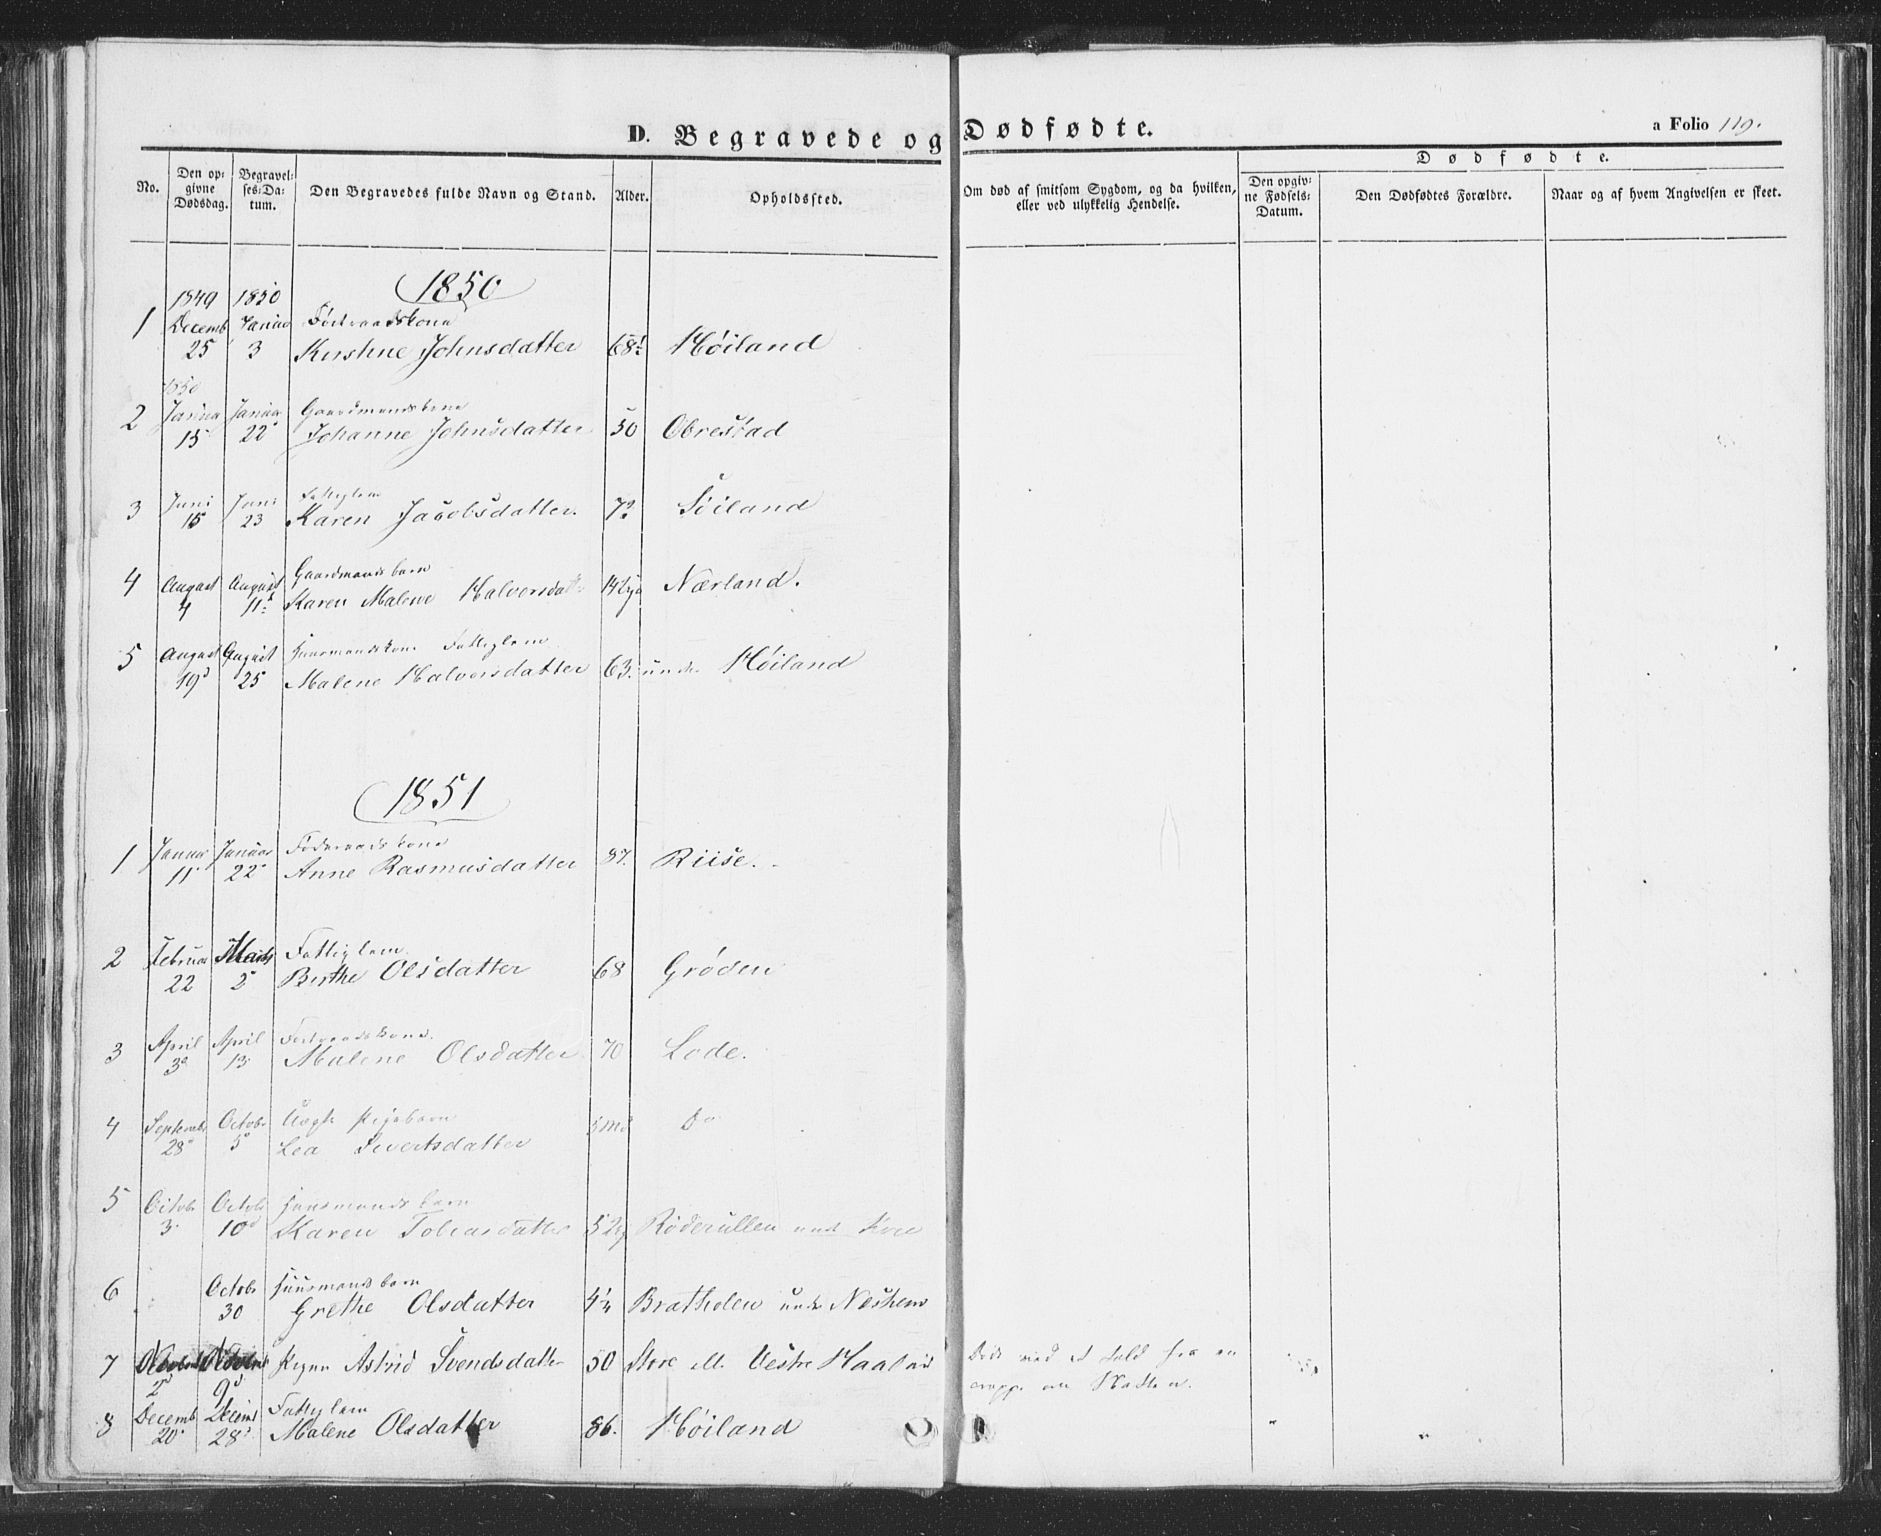 D. Begravede og Dødfødte.
a Folio 119.
No.
Den op-
givne
Dødsdag.
Begravel-
ses-Da-
tum.
Den Begravedes fulde Navn og Stand.
Alder.
Opholdssted.
Om død af smitsom Sygdom, og da hvilken,
eller ved ulykkelig Hendelse.
Dødfødte.
Den opgiv-
ne Fødsels-
Datum.
Den Dødfødtes Forældre.
Naar og af hvem Angivelsen er skeet.
1850
1849 1850
1 Decemb Januar
25 3 Kirstine Johnsdatter 68 Høiland
1850
2 Januar Januar Gaardmandskone
15 22 Johanne Johnsdatter 50 Obrestad
3 Juni Juni Fattiglem
15 23 Karen Jacobsdatter Søiland
4 August August Gaardmandsbarn
4 11 Karen Malene Halvorsdatter Nærland.
5 August August Huusmandskone Fattiglem
19 25 Malene Halvorsdatter 63. under Høiland
1851
1 Januar Januar Føderaadskone
11 22 Anne Rasmusdatter 87. Riise.
2 Februar Marts Fattiglem
22 2 Birthe Olsdatter 68 Grøden
3 April April
3 13 Malene Olsdatter 70 Lode.
4 Septemb Octobr Uægte Pigebarn
28 5 Lea Sivertsdatter Do
5 Octobr Octobr Huusmandsbarn
3 10 Karen Tobiasdatter under
6 Octobr Huusmandsbarn
30 Grethe Olsdatter Bratholen under Næshem
7 Pigen Astrid Svendsdatter 50 Store ell. Vestre
2 9
Døde ved et Fald fra en
8 Decemb Decemb Fattiglem
20 28 Malene Olsdatter 86. Høiland